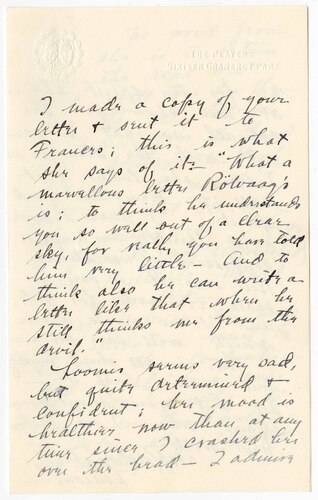 THE PLAYERS
SIXTEEN GRAMERCY PARK
I made a copy of your
letter & sent it to
Frances; this is what
she says of it:- "What a
marvellous letter Rölvaag's
is; to think he understands
you so well out of a clear
sky, for really you have told
him very little - And to
think also he can write a
letter like that when he
still thinks me from the
devil."
Loomis seems very sad,
but quite determined &
confident; her mood is
healthier now than at any
time since I crashed her
over the head - I admire